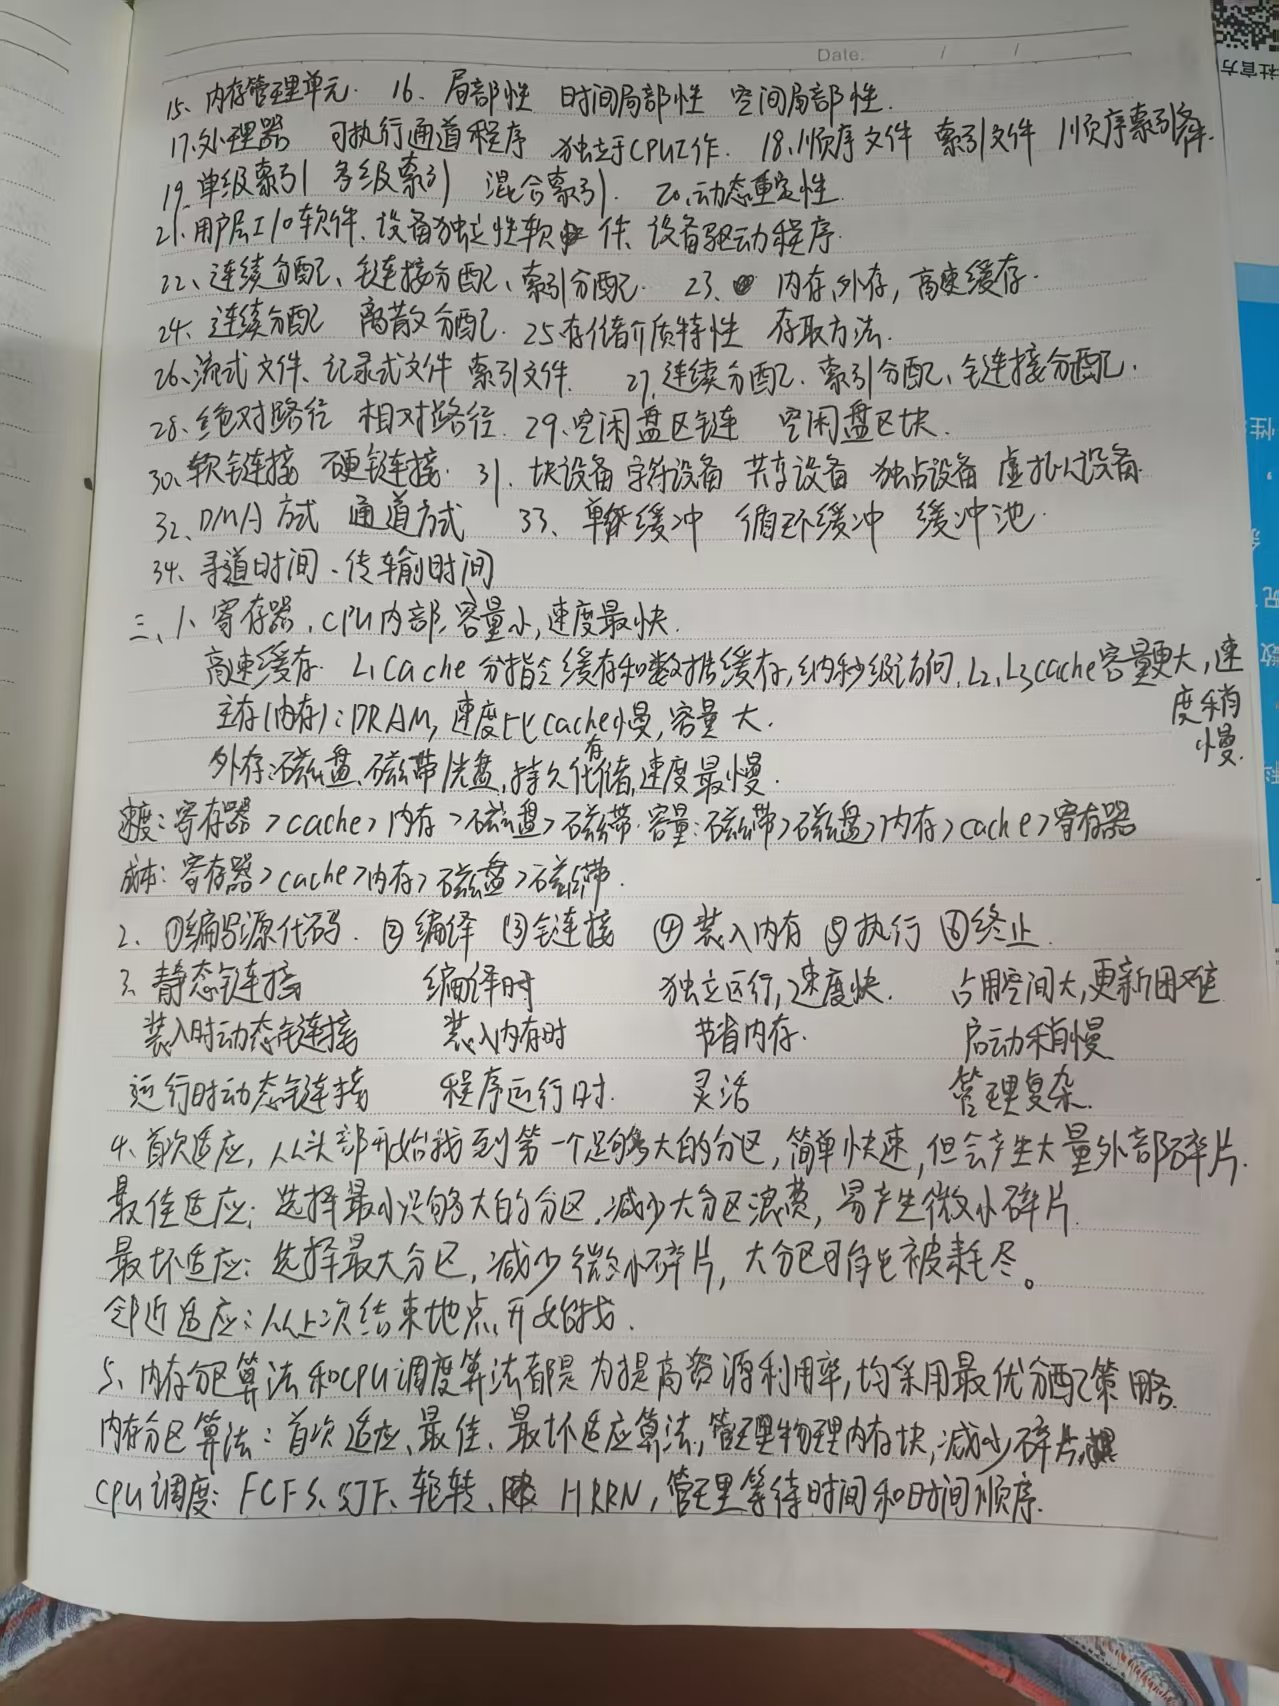 Date. / /
15、内存管理单元. 16、局部性 时间局部性 空间局部性.
17.处理器 可执行通道程序 独立于CPU工作. 18、顺序文件 索引文件 顺序索引文件.
19.单级索引 多级索引 混合索引. 20、动态重定性
21、用户层I/O软件、设备独立性软件、设备驱动程序.
22、连续分配、链接分配、索引分配. 23、内存,外存,高速缓存.
24、连续分配 离散分配. 25、存储介质特性 存取方法.
26、流式文件、记录式文件 索引文件. 27、连续分配、索引分配、链连接分配.
28、绝对路径 相对路径. 29、空闲盘区链 空闲盘区块.
30、软链连接 硬链连接. 31、块设备 字符设备 共享设备 独占设备 虚拟设备.
32、DMA方式 通道方式 33、单缓冲 循环缓冲 缓冲池.
34、寻道时间、传输时间
三、1、寄存器.CPU内部,容量小,速度最快.
高速缓存. L1 cache 分指令缓存和数据缓存,纳秒级访问.L2,L3cache容量更大,速度稍慢.
主存(内存):DRAM,速度比cache慢,容量大.
外存:磁盘、磁带/光盘,持久存储,速度最慢.
速度:寄存器>cache>内存>磁盘>磁带.容量:磁带>磁盘>内存>cache>寄存器
成本:寄存器>cache>内存>磁盘>磁带.
2、①编写源代码.②编译 ③链连接 ④装入内存 ⑤执行 ⑥终止.
3、静态链连接 编译时 独立运行,速度快. 占用空间大,更新困难
装入时动态链连接 装入内存时 节省内存. 启动稍慢
运行时动态链连接 程序运行时. 灵活 管理复杂.
4、首次适应,从头部开始找到第一个足够大的分区,简单快速,但会产生大量外部碎片.
最佳适应:选择最小足够大的分区.减少大分区浪费,易产生微小碎片.
最坏适应:选择最大分区,减少微小碎片,大分区可能被耗尽。
邻近适应:从上次结束地点开始找.
5、内存分区算法和CPU调度算法都是为提高资源利用率,均采用最优分配策略.
内存分区算法:首次适应、最佳、最坏适应算法,管理物理内存块,减少碎片,
CPU调度:FCFS、SJF、轮转、HRRN,管理等待时间和时间顺序.
社官方